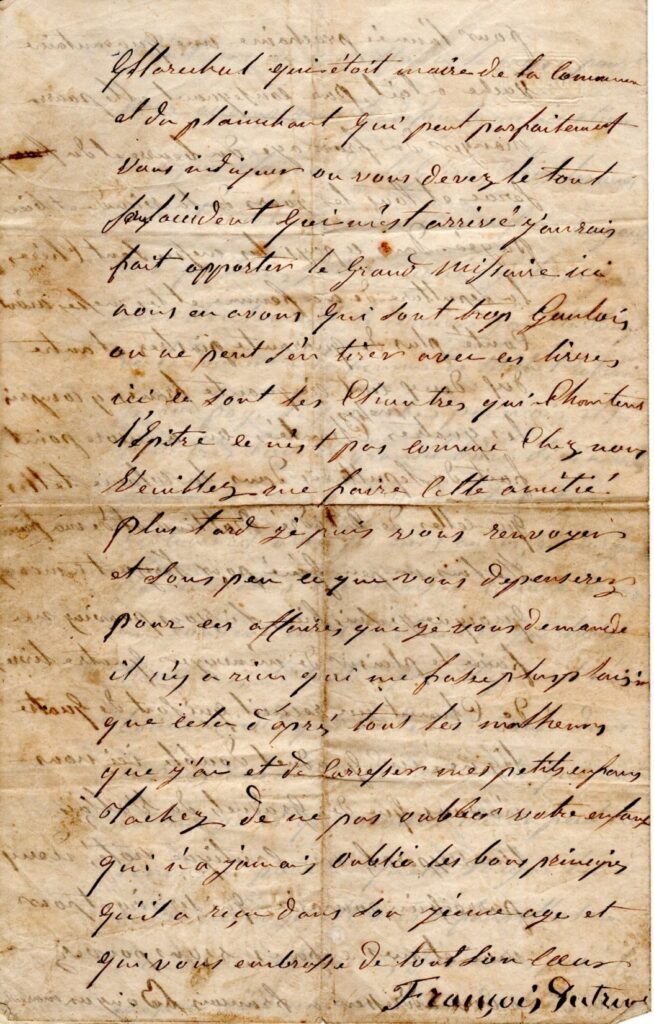 Marechal qui était maire de la Commune
et du plainchant qui peut parfaitement
vous indiquer ou vous devez le tout
l'accident qui m'est arrivé j'aurais
fait apporter le Grand Missaire ici
nous en avons qui sont trop Gaulois
on ne peut s'en tirer avec ces livres
ici ce sont les Chantres qui Chantent
l'Epitre ce n'est pas comme Chez nous
Veuillez me faire cette amitié
plus tard je puis vous renvoyer
et sous peu ce que vous depenserez
pour ces affaires que je vous demande
il n'y a rien qui me fasse plus plaisir
que cela d'après tout les malheurs
que j'ai et de Carresser mes petits enfans
Tachez de ne pas oublier votre enfant
qui n'a jamais oublié les bons principes
qu'il a reçu dans son jeune age et
qui vous embrasse de tout son Cœur
François Dutrive